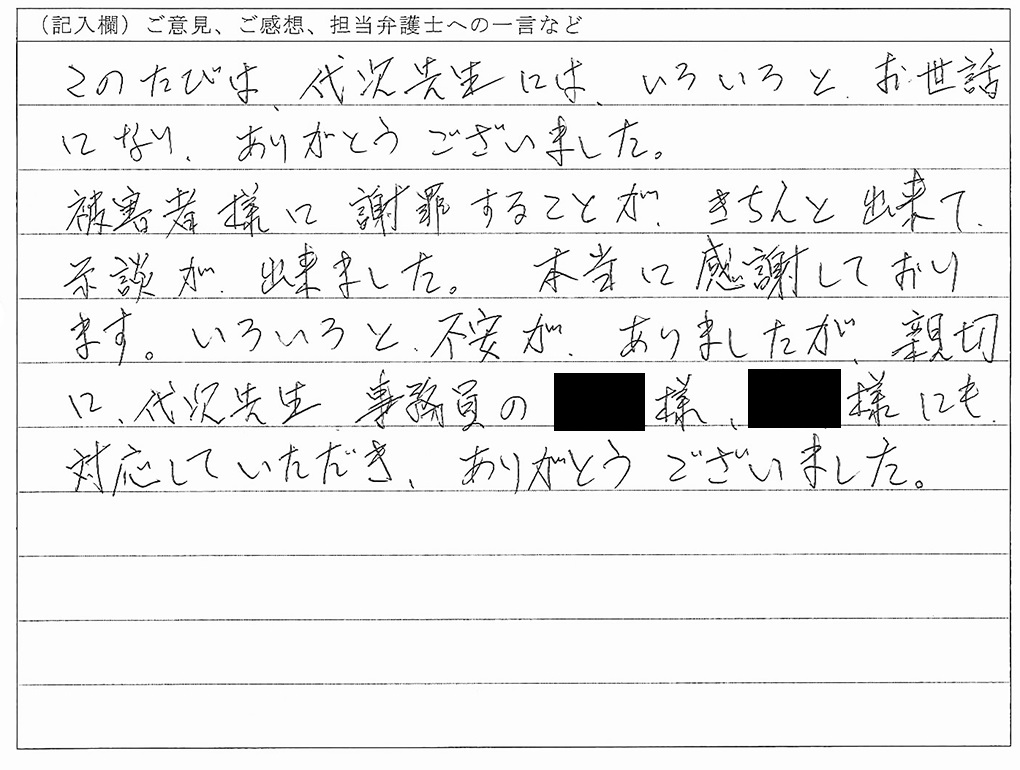 （記入欄）ご意見、ご感想、担当弁護士への一言など
このたびは、代次先生には、いろいろと、お世話
になり、ありがとうございました。
被害者様に謝罪することが、きちんと出来て、
示談が、出来ました。本当に感謝しており
ます。いろいろと、不安が、ありましたが、親切
に、代次先生、事務員の 様、 様にも、
対応していただき、ありがとうございました。